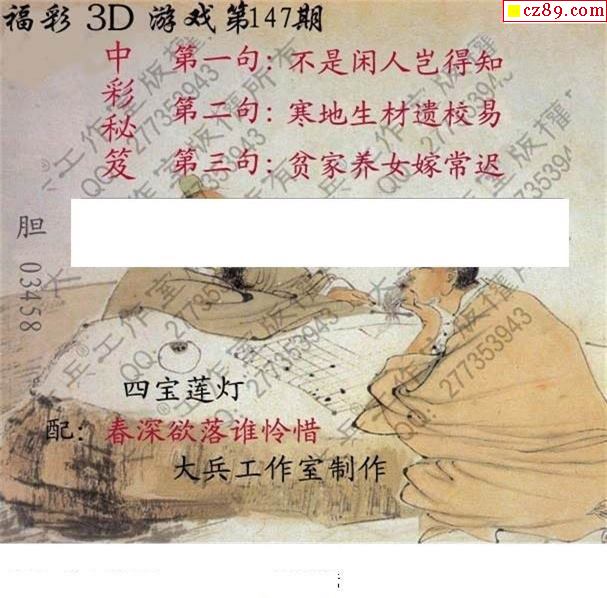 福彩 3D 游戏第147期
cz89.com
中彩秘笈
第一句：不是闲人岂得知
第二句：寒地生材遗校易
第三句：贫家养女嫁常迟
胆 03458
四宝莲灯
配：春深欲落谁怜惜
大兵工作室制作
大兵工作室版权所有
QQ：277353943